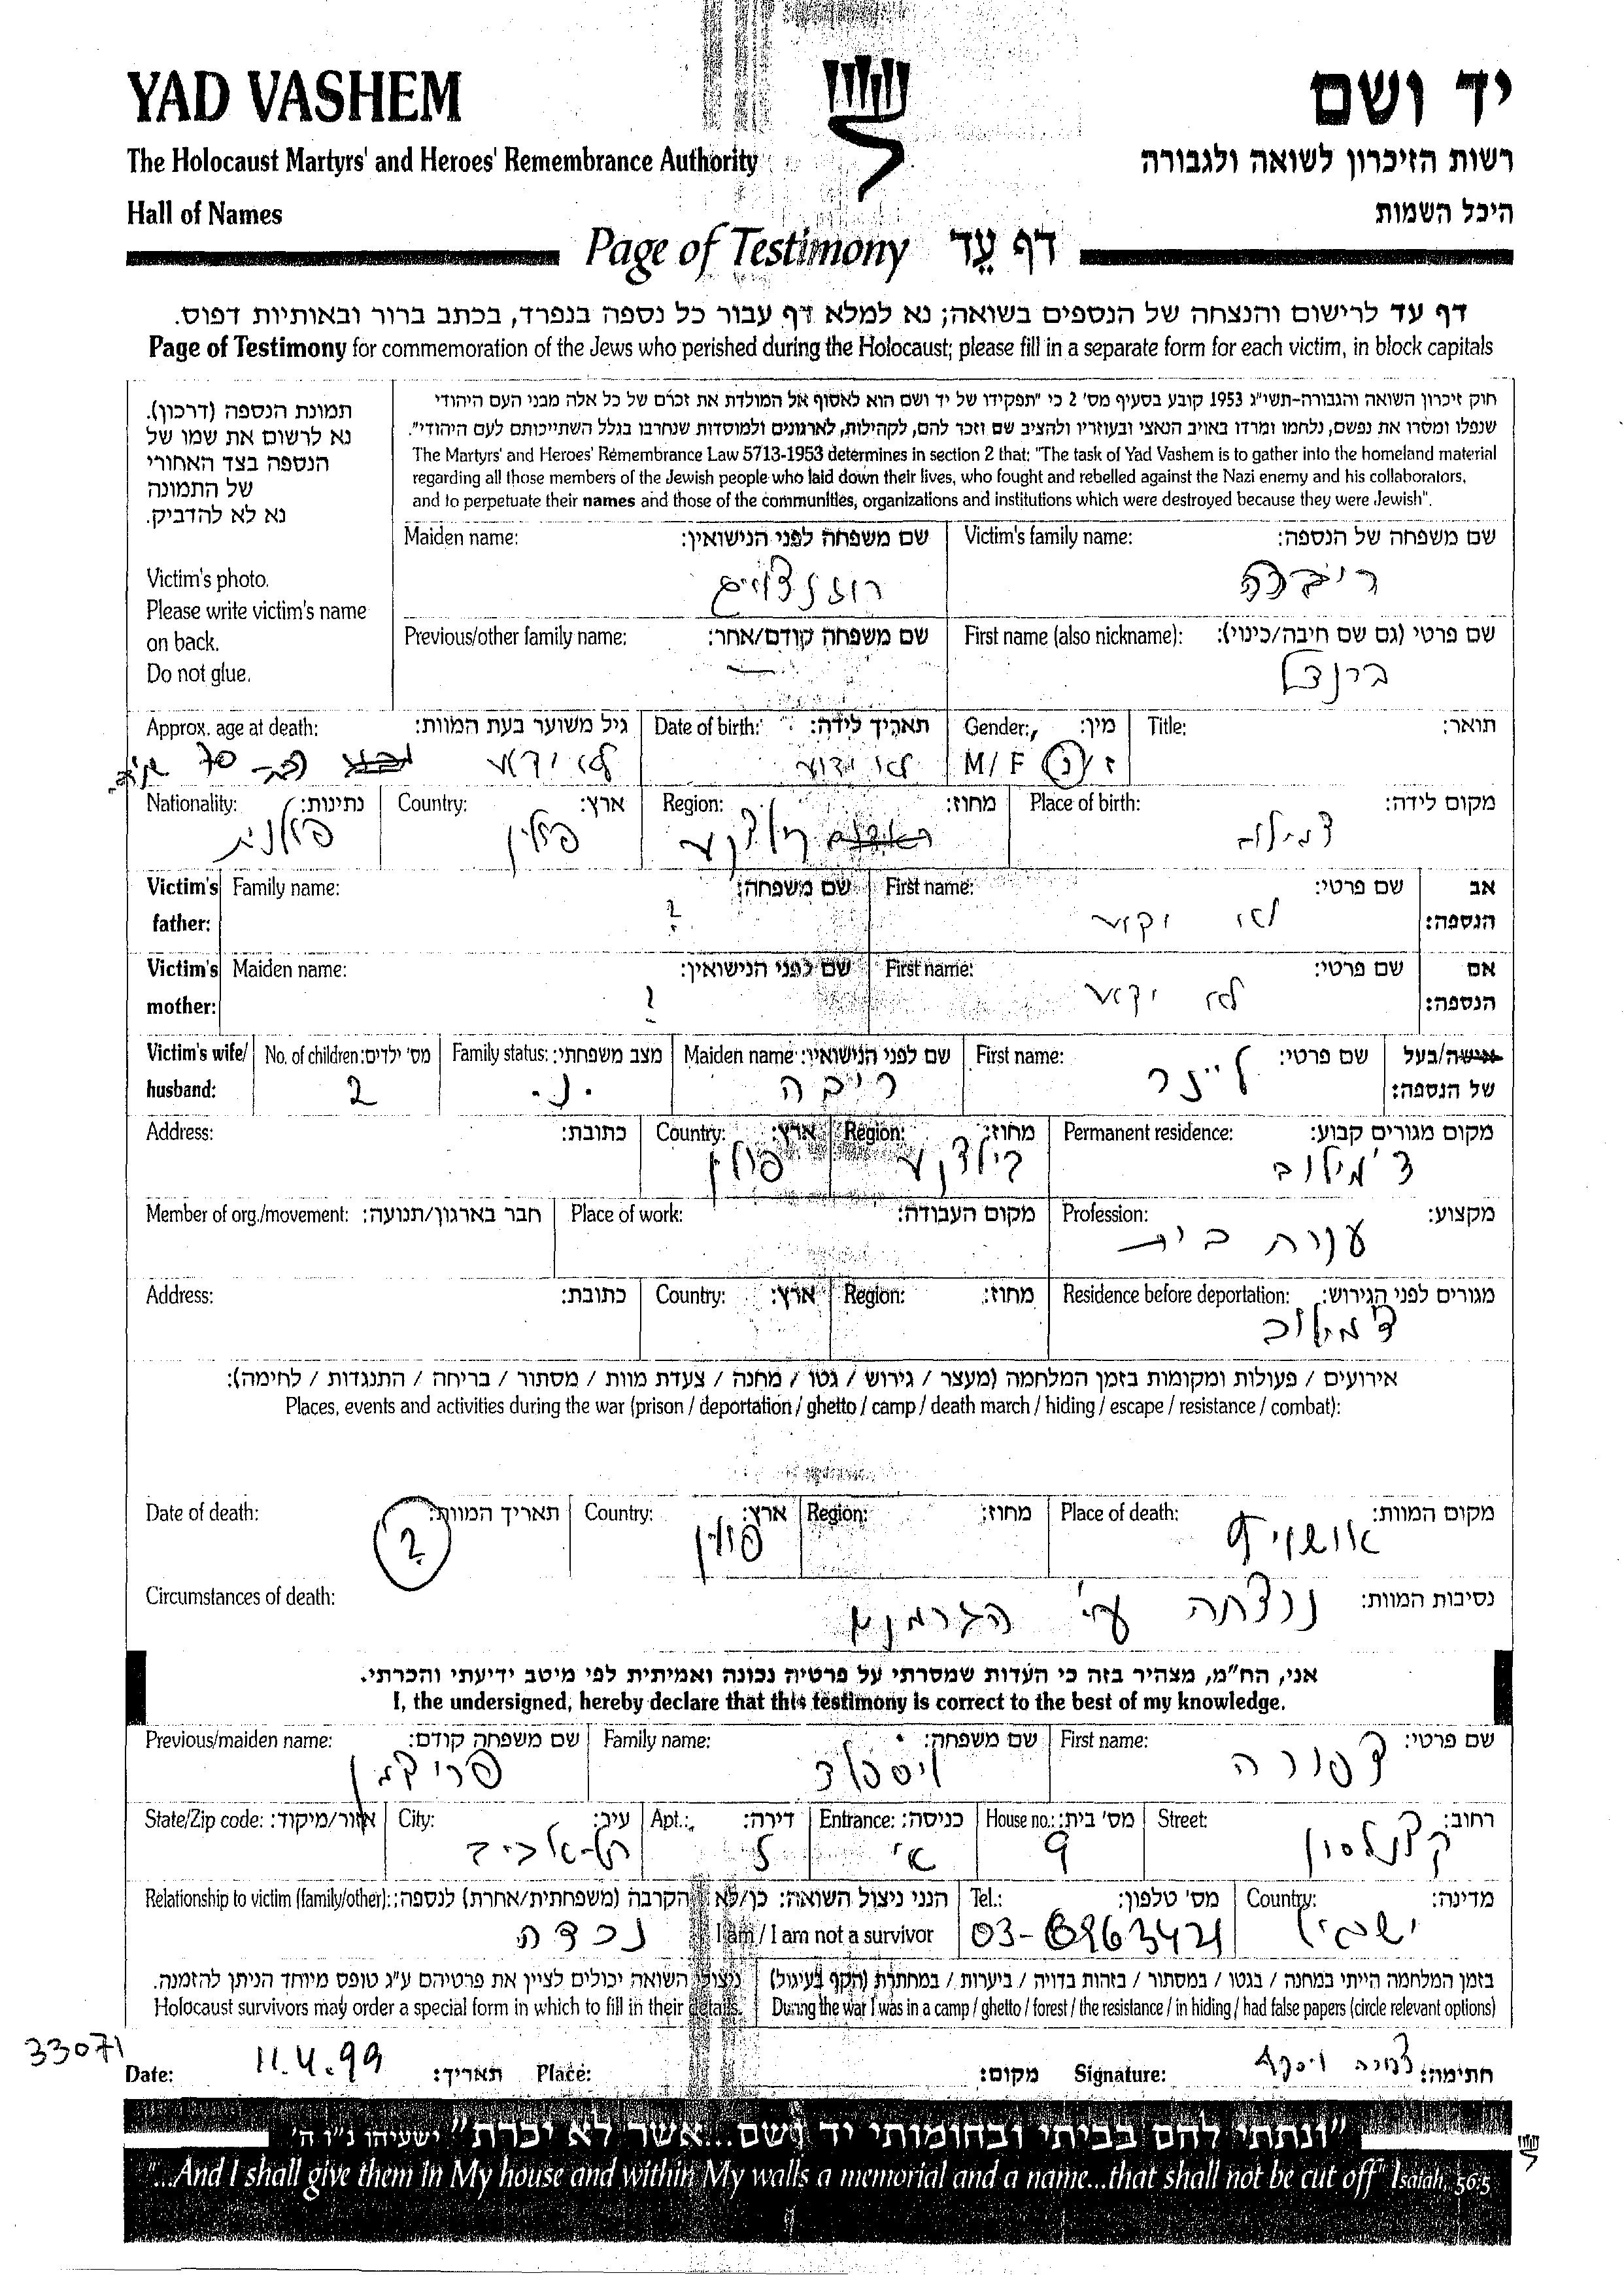 YAD VASHEM
יד ושם
The Holocaust Martyrs' and Heroes' Remembrance Authority
רשות הזיכרון לשואה ולגבורה
Hall of Names
היכל השמות
Page of Testimony דף עֵד
דף עד לרישום והנצחה של הנספים בשואה; נא למלא דף עבור כל נספה בנפרד, בכתב ברור ובאותיות דפוס.
Page of Testimony for commemoration of the Jews who perished during the Holocaust; please fill in a separate form for each victim, in block capitals
תמונת הנספה (דרכון).
נא לרשום את שמו של
הנספה בצד האחורי
של התמונה
נא לא להדביק.
Victim's photo.
Please write victim's name
on back.
Do not glue.
חוק זיכרון השואה והגבורה-תשי"ג 1953 קובע בסעיף מס' 2 כי "תפקידו של יד ושם הוא לאסוף אל המולדת את זכרם של כל אלה מבני העם היהודי
שנפלו ומסרו את נפשם, נלחמו ומרדו באויב הנאצי ובעוזריו ולהציב שם וזכר להם, לקהילות, לארגונים ולמוסדות שנחרבו בגלל השתייכותם לעם היהודי".
The Martyrs' and Heroes' Remembrance Law 5713-1953 determines in section 2 that: "The task of Yad Vashem is to gather into the homeland material
regarding all those members of the Jewish people who laid down their lives, who fought and rebelled against the Nazi enemy and his collaborators,
and to perpetuate their names and those of the communities, organizations and institutions which were destroyed because they were Jewish".
Victim's family name: שם משפחה של הנספה:
Maiden name: שם משפחה לפני הנישואין:
רוזנצוייג
First name (also nickname): שם פרטי (גם שם חיבה/כינוי):
ברנדל
Previous/other family name: שם משפחה קודם/אחר:
—
Title: תואר:
Gender: מין:
M / F ז / נ
Date of birth: תאריך לידה:
לא ידוע
Approx. age at death: גיל משוער בעת המוות:
לא ידוע 70
Place of birth: מקום לידה:
Region: מחוז:
Country: ארץ:
פולין
Nationality: נתינות:
פולנית
Victim's father: אב הנספה:
First name: שם פרטי:
לא ידוע
Family name: שם משפחה:
?
Victim's mother: אם הנספה:
First name: שם פרטי:
לא ידוע
Maiden name: שם לפני הנישואין:
?
Victim's wife/ husband: אישה/בעל של הנספה:
First name: שם פרטי:
לייזר
Maiden name: שם לפני הנישואין:
ריבה
Family status: מצב משפחתי:
נ.
No. of children: מס' ילדים:
2
Permanent residence: מקום מגורים קבוע:
צ'מילוב
Region: מחוז:
Country: ארץ:
פולין
Address: כתובת:
Profession: מקצוע:
עקרת בית
Place of work: מקום העבודה:
Member of org./movement: חבר בארגון/תנועה:
Residence before deportation: מגורים לפני הגירוש:
צ'מילוב
Region: מחוז:
Country: ארץ:
Address: כתובת:
אירועים / פעולות ומקומות בזמן המלחמה (מעצר / גירוש / גטו / מחנה / צעדת מוות / מסתור / בריחה / התנגדות / לחימה):
Places, events and activities during the war (prison / deportation / ghetto / camp / death march / hiding / escape / resistance / combat):
Place of death: מקום המוות:
אושויץ
Region: מחוז:
Country: ארץ:
פולין
Date of death: תאריך המוות:
?
Circumstances of death: נסיבות המוות:
נרצחה ע"י הגרמנים
אני, הח"מ, מצהיר בזה כי העדות שמסרתי על פרטיה נכונה ואמיתית לפי מיטב ידיעתי והכרתי.
I, the undersigned, hereby declare that this testimony is correct to the best of my knowledge.
First name: שם פרטי:
צפורה
Family name: שם משפחה:
Previous/maiden name: שם משפחה קודם:
פרידמן
Street: רחוב:
קצנלסון
House no.: מס' בית:
9
Entrance: כניסה:
א'
Apt.: דירה:
City: עיר:
תל-אביב
State/Zip code: אזור/מיקוד:
Country: מדינה:
ישראל
Tel.: מס' טלפון:
03-6963421
הנני ניצול השואה: כן/לא
I am / I am not a survivor
Relationship to victim (family/other): הקרבה (משפחתית/אחרת) לנספה:
נכדה
בזמן המלחמה הייתי במחנה / בגטו / במסתור / בזהות בדויה / ביערות / במחתרת (הקף בעיגול)
During the war I was in a camp / ghetto / forest / the resistance / in hiding / had false papers (circle relevant options)
ניצולי השואה יכולים לציין את פרטיהם ע"ג טופס מיוחד הניתן להזמנה.
Holocaust survivors may order a special form in which to fill in their details.
33071
Date: 11.4.99 תאריך: Place: מקום: Signature: חתימה:
"ונתתי להם בביתי ובחומותי יד ושם...אשר לא יכרת" ישעיהו נ"ו ה'
"...And I shall give them in My house and within My walls a memorial and a name...that shall not be cut off" Isaiah, 56:5